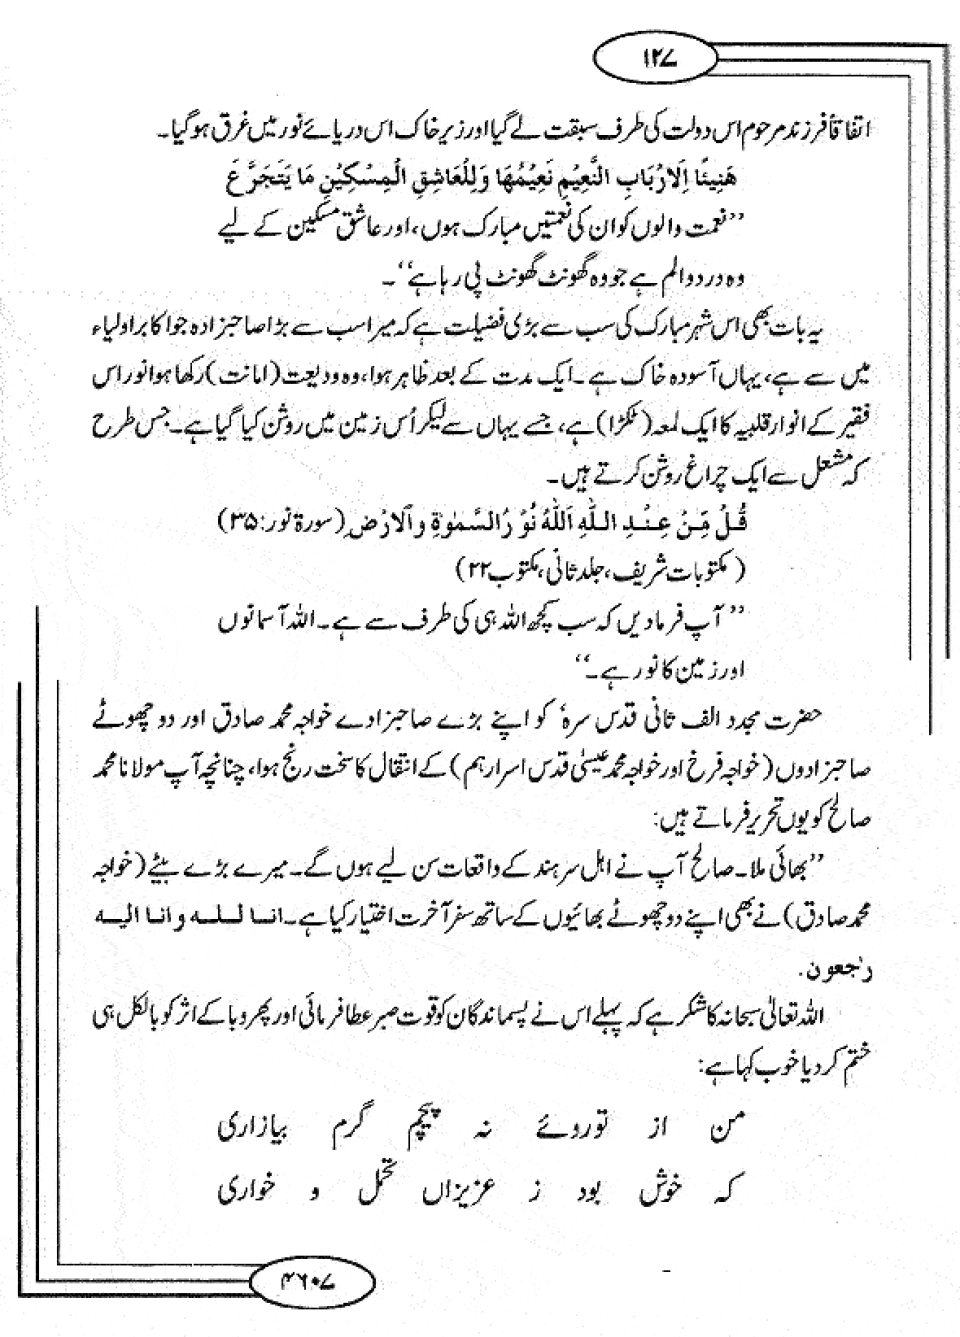 ۱۲۷
اتفاقاً فرزند مرحوم اس دولت کی طرف سبقت لے گیا اور زیر خاک اس دریائے نور میں غرق ہو گیا۔
هَنِيئًا اِلَارْبَابِ النَّعِيْمِ نَعِيْمُهَا وَلِلْعَاشِقِ الْمِسْكِيْنِ مَا يَتَجَرَّعُ
’’نعمت والوں کو ان کی نعمتیں مبارک ہوں، اور عاشق مسکین کے لیے
وہ درد و الم ہے جو وہ گھونٹ گھونٹ پی رہا ہے‘‘۔
یہ بات بھی اس شہر مبارک کی سب سے بڑی فضیلت ہے کہ میرا سب سے بڑا صاحبزادہ جو اکابر اولیاء
میں سے ہے، یہاں آسودہ خاک ہے۔ ایک مدت کے بعد ظاہر ہوا، وہ ودیعت (امانت) رکھا ہوا نور اس
فقیر کے انوار قلبیہ کا ایک لمعہ (ٹکڑا) ہے، جسے یہاں سے لیکر اُس زمین میں روشن کیا گیا ہے۔ جس طرح
کہ مشعل سے ایک چراغ روشن کرتے ہیں۔
قُلْ مِّنْ عِنْدِ اللّٰهِ اَللّٰهُ نُوْرُ السَّمٰوٰةِ وَالْاَرْضِ (سورۃ نور:۳۵)
(مکتوبات شریف، جلد ثانی، مکتوب ۲۲)
’’آپ فرما دیں کہ سب کچھ اللہ ہی کی طرف سے ہے۔ اللہ آسمانوں
اور زمین کا نور ہے۔‘‘
حضرت مجدد الف ثانی قدس سرہٗ کو اپنے بڑے صاحبزادے خواجہ محمد صادق اور دو چھوٹے
صاحبزادوں (خواجہ فرخ اور خواجہ محمد عیسیٰ قدس اسرارہم) کے انتقال کا سخت رنج ہوا، چنانچہ آپ مولانا محمد
صالح کو یوں تحریر فرماتے ہیں:
’’بھائی ملا۔ صالح آپ نے اہل سرہند کے واقعات سن لیے ہوں گے۔ میرے بڑے بیٹے (خواجہ
محمد صادق) نے بھی اپنے دو چھوٹے بھائیوں کے ساتھ سفر آخرت اختیار کیا ہے۔ انا للہ و انا الیہ
رٰجعون.
اللہ تعالیٰ سبحانہ کا شکر ہے کہ پہلے اس نے پسماندگان کو قوت صبر عطا فرمائی اور پھر وبا کے اثر کو بالکل ہی
ختم کر دیا خوب کہا ہے:
من از تو روئے نہ پیچم گرم بیازاری
کہ خوش بود ز عزیزاں تحمل و خواری
۴۶۰۷